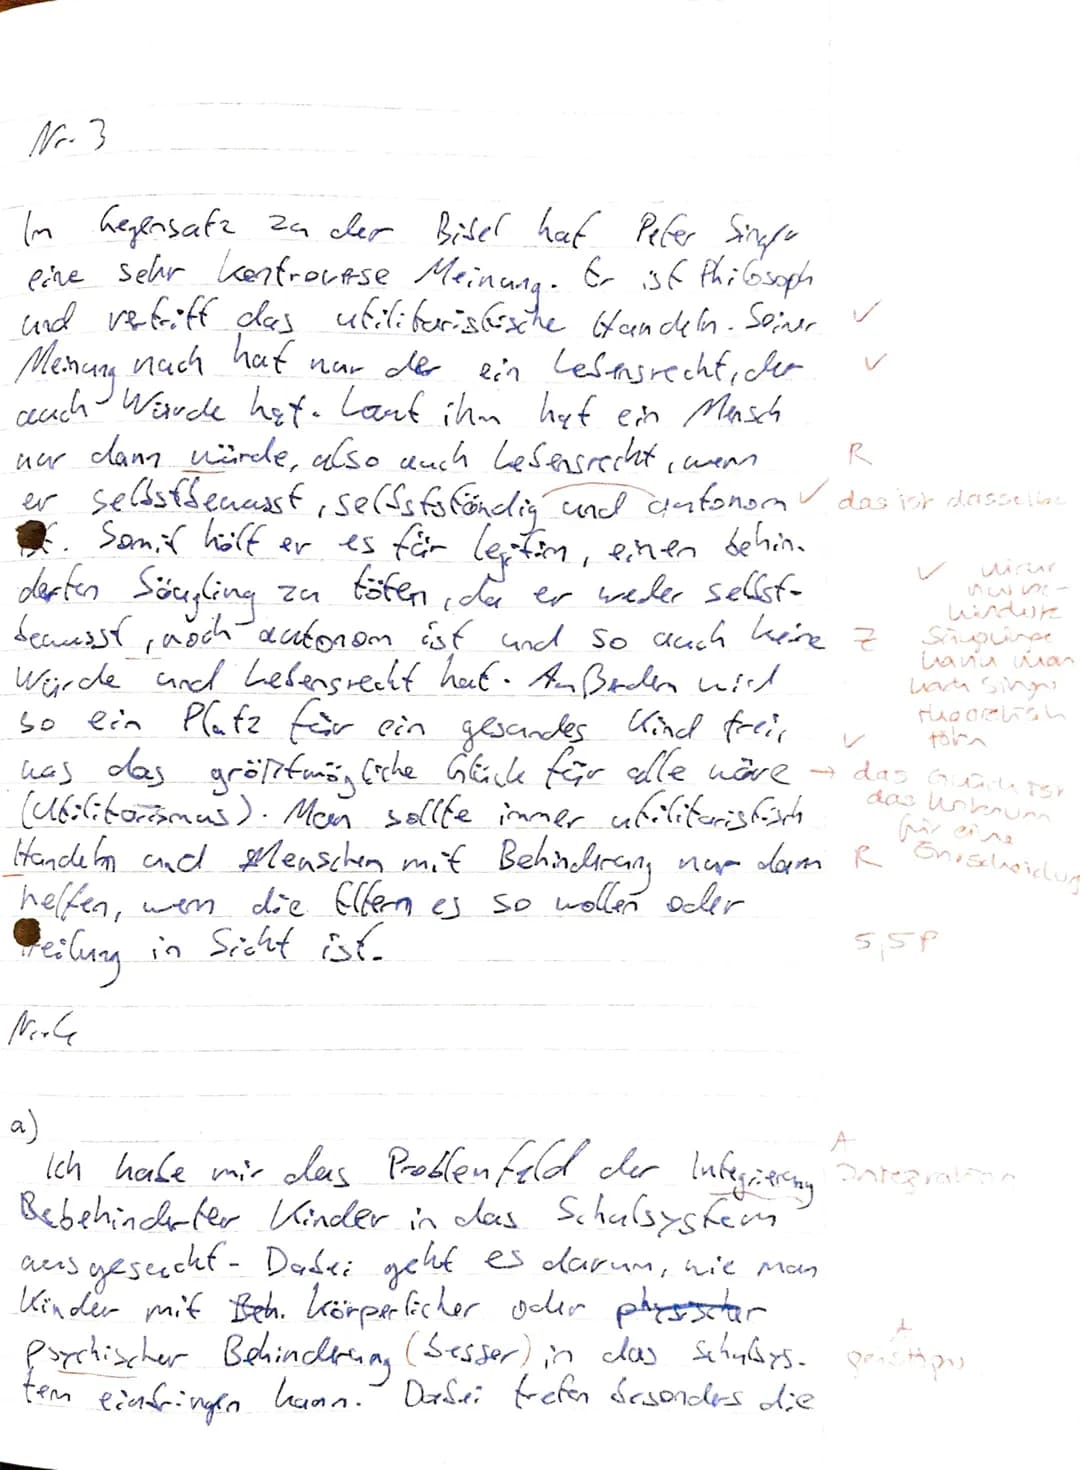 Nr. 3
Im Gegensatz zu der Bibel hat Peter Singer
eine sehr kontroverse Meinung. Er ist Philosoph
und vertritt das utilitaristische Handeln. Seiner ✓
Meinung nach hat nur der ein Lebensrecht, der ✓
auch Würde hat. Laut ihm hat ein Mensch
nur dann würde, also auch Lebensrecht, wenn R
er selbstbewusst, selbstständig und autonom ✓ das ist dasselbe
ist. Somit hält er es für legitim, einen behin-
derten Säugling zu töten, da er weder selbst-
bewusst, noch autonom ist und so auch keine Z
Würde und Lebensrecht hat. Außerdem wird
so ein Platz für ein gesundes Kind frei,
was das größtmögliche Glück für alle wäre → das Glück ist
(Utilitarismus). Man sollte immer utilitaristisch
Handeln und Menschen mit Behinderung nur dann R
helfen, wenn die Eltern es so wollen oder
Heilung in Sicht ist.
✓ nicht
nur
behinderte
Säuglinge
kann man
nach Singer
theoretisch
✓ töten
das Kriterium
für eine
Entscheidung
5,5P
Nr. 4
a)
Ich habe mir das Problemfeld der Integrierung A Integration
Bebehinderter Kinder in das Schulsystem
ausgesucht. Dabei geht es darum, wie man
Kinder mit Beh. körperlicher oder physischer
psychischer Behinderung (besser) in das Schulsys- A geistiger
tem einbringen kann. Dabei treten besonders die